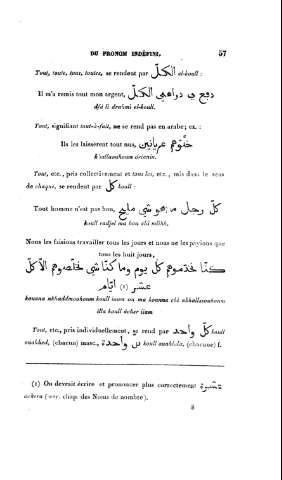 DU PRONOM INDÉFINI. 57
Tout, toute, tous, toutes, se rendent par الكلّ el-koull :
Il m'a remis tout mon argent, دفع لي دراهمي الكلّ
dfá li drahmi el-koull.
Tout, signifiant tout-à-fait, ne se rend pas en arabe ; ex. :
Ils les laissèrent tout nus, خلّوهم عريانين
k'allaouhoum árianin.
Tout, etc., pris collectivement et tous les, etc., mis dans le sens
de chaque, se rendent par كلّ koull :
Tout homme n'est pas bon, كلّ رجل ما هو شي مليح
koull radjel ma hou chi mlihh.
Nous les faisions travailler tous les jours et nous ne les payions que
tous les huit jours,
كنّا نخدّموهم كلّ يوم وما كنّا شي نخلّصوهم الّا كلّ
عشر (1) ايّام
kounna nkhaddmouhoum koull ioum ou ma kounna chi nkhallasouhoum
illa koull ácher iiam.
Tout, etc., pris individuellement, se rend par كلّ واحد koull
ouahhed, (chacun) masc., كلّ واحدة koull ouahhda, (chacune) f.
(1) On devrait écrire et prononcer plus correctement عشرة
achera (voy. chap. des Noms de nombre).
8